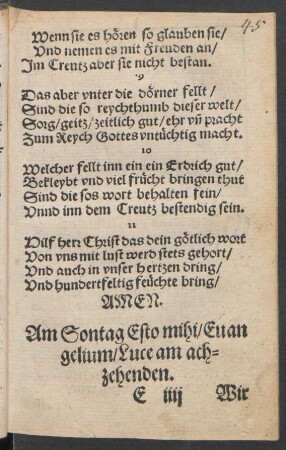 45
Wenn sie es hören so glauben sie/
Vnd nemen es mit Freuden an/
Im Creutz aber sie nicht bestan.
9
Das aber vnter die dörner fellt/
Sind die so reychthumb dieser welt/
Sorg/geitz/zeitlich gut/ehr vn̄ pracht
Zum Reych Gottes vntüchtig macht.
10
Welcher fellt inn ein ein Erdrich gut/
Bekleybt vnd viel frücht bringen thut
Sind die sos wort behalten fein/
Vnnd inn dem Creutz bestendig sein.
11
Hilf herr Christ das dein götlich wort
Von vns mit lust werd stets gehort/
Vnd auch in vnser hertzen dring/
Vnd hundertfeltig feüchte bring/
AMEN.
Am Sontag Esto mihi/Euan
gelium/Luce am ach-
zehenden.
E iiij Wir